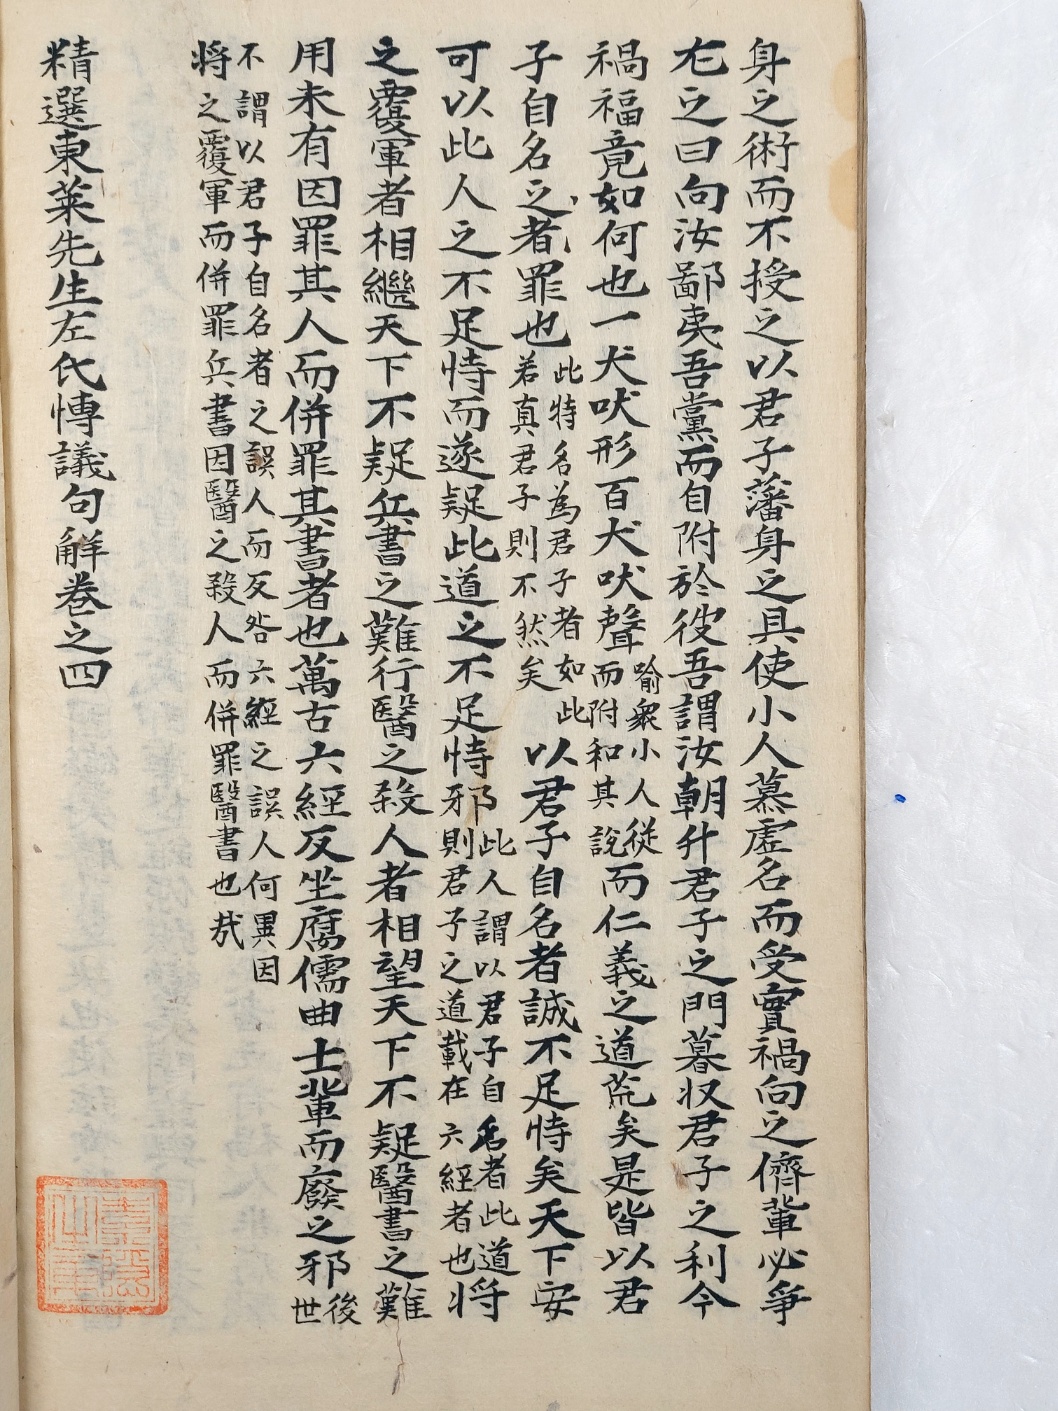 身之術而不授之以君子藩身之具使小人慕虛名而受實禍向之儕輩必爭
尤之曰向汝鄙夷吾黨而自附於彼吾謂汝朝升君子之門暮収君子之利今
禍福竟如何也一犬吠形百犬吠聲喻衆小人從而附和其說而仁義之道荒矣是皆以君
子自名之者罪也此特名為君子者如此若真君子則不然矣以君子自名者誠不足恃矣天下安
可以此人之不足恃而遂疑此道之不足恃邪此人謂以君子自名者此道則君子之道載在六經者也將
之覆軍者相繼天下不疑兵書之難行醫之殺人者相望天下不疑醫書之難
用未有因罪其人而併罪其書者也萬古六經反坐腐儒曲士輩而廢之邪後世
不謂以君子自名者之誤人而反咎六經之誤人何異因
將之覆軍而併罪兵書因醫之殺人而併罪醫書也㢤
精選東萊先生左氏博議句解卷之四